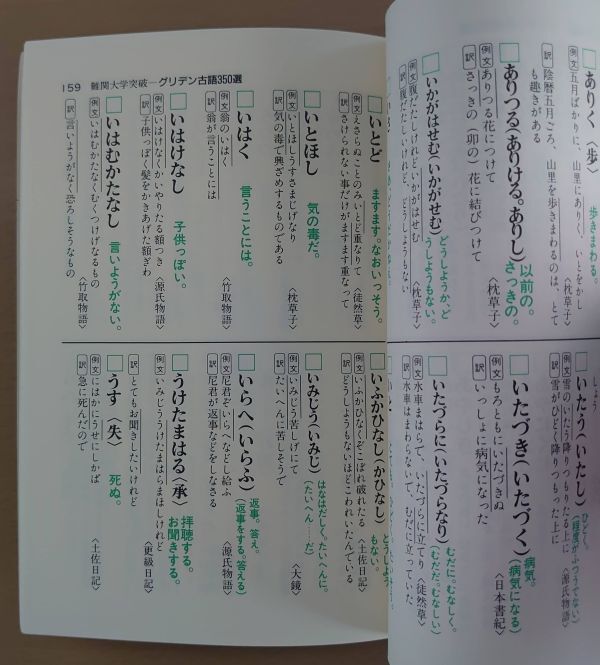 ありく（歩）
歩きまわる。
例文 五月ばかりに、山里にありく、いとをかし
〈枕草子〉
訳 陰暦五月ごろ、山里を歩きまわるのは、とて
も趣きがある
ありつる（ありける。ありし）
以前の。
さっきの。
例文 ありつる花につけて
〈枕草子〉
訳 さっきの（卯の）花に結びつけて
いかがはせむ（いかがせむ）
どうしようか、ど
うしようもない。
例文 腹だたしけれどいかがはせむ
〈枕草子〉
訳 腹だたしいけれど、どうしようもない
しょう
いたう（いたし）
ひどく。
（程度がふつうでない）
例文 雪のいたう降りつもりたる上に
〈源氏物語〉
訳 雪がひどく降りつもった上に
いたづき（いたづく）
病気。
（病気になる）
例文 もろともにいたづきぬ
〈日本書紀〉
訳 いっしょに病気になった
いたづらに（いたづらなり）
むだに。むなしく。
（むだだ。むなしい）
例文 水車まはらで、いたづらに立てり
〈徒然草〉
訳 水車はまわらないで、むだに立っていた
159 難関大学突破—グリデン古語350選
いとど
ますます。なおいっそう。
例文 えさらぬことのみいとど重なりて
〈徒然草〉
訳 さけられない事だけがますます重なって
いとほし
気の毒だ。
例文 いとほしうすさまじげなり
〈枕草子〉
訳 気の毒で興ざめするものである
いはく
言うことには。
例文 翁のいはく
〈竹取物語〉
訳 翁が言うことには
いはけなし
子供っぽい。
例文 いはけなくかいやりたる額つき
〈源氏物語〉
訳 子供っぽく髪をかきあげた額ぎわ
いはむかたなし
言いようがない。
例文 いはむかたなくむくつけげなるもの
〈竹取物語〉
訳 言いようがなく恐ろしそうなもの
いふかひなし（かひなし）
どうしよう
もない。
例文 いふかひなくぞこぼれ破れたる
〈土佐日記〉
訳 どうしようもないほどこわれいたんでいる
いみじう（いみじ）
はなはだしく。たいへんに。
（たいへん……だ）
例文 いみじう苦しげにて
〈大鏡〉
訳 たいへんに苦しそうで
いらへ（いらふ）
返事。答え。
（返事をする。答える）
例文 尼君ぞいらへなどし給ふ
〈源氏物語〉
訳 尼君が返事などをしなさる
うけたまはる（承）
拝聴する。
お聞きする。
例文 いみじううけたまはらまほしけれど
〈更級日記〉
訳 とてもお聞きしたいけれど
うす（失）
死ぬ。
例文 にはかにうせにしかば
〈土佐日記〉
訳 急に死んだので